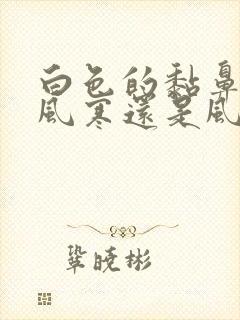 白色的黏鼻
風寒還是風
鞏曉彬